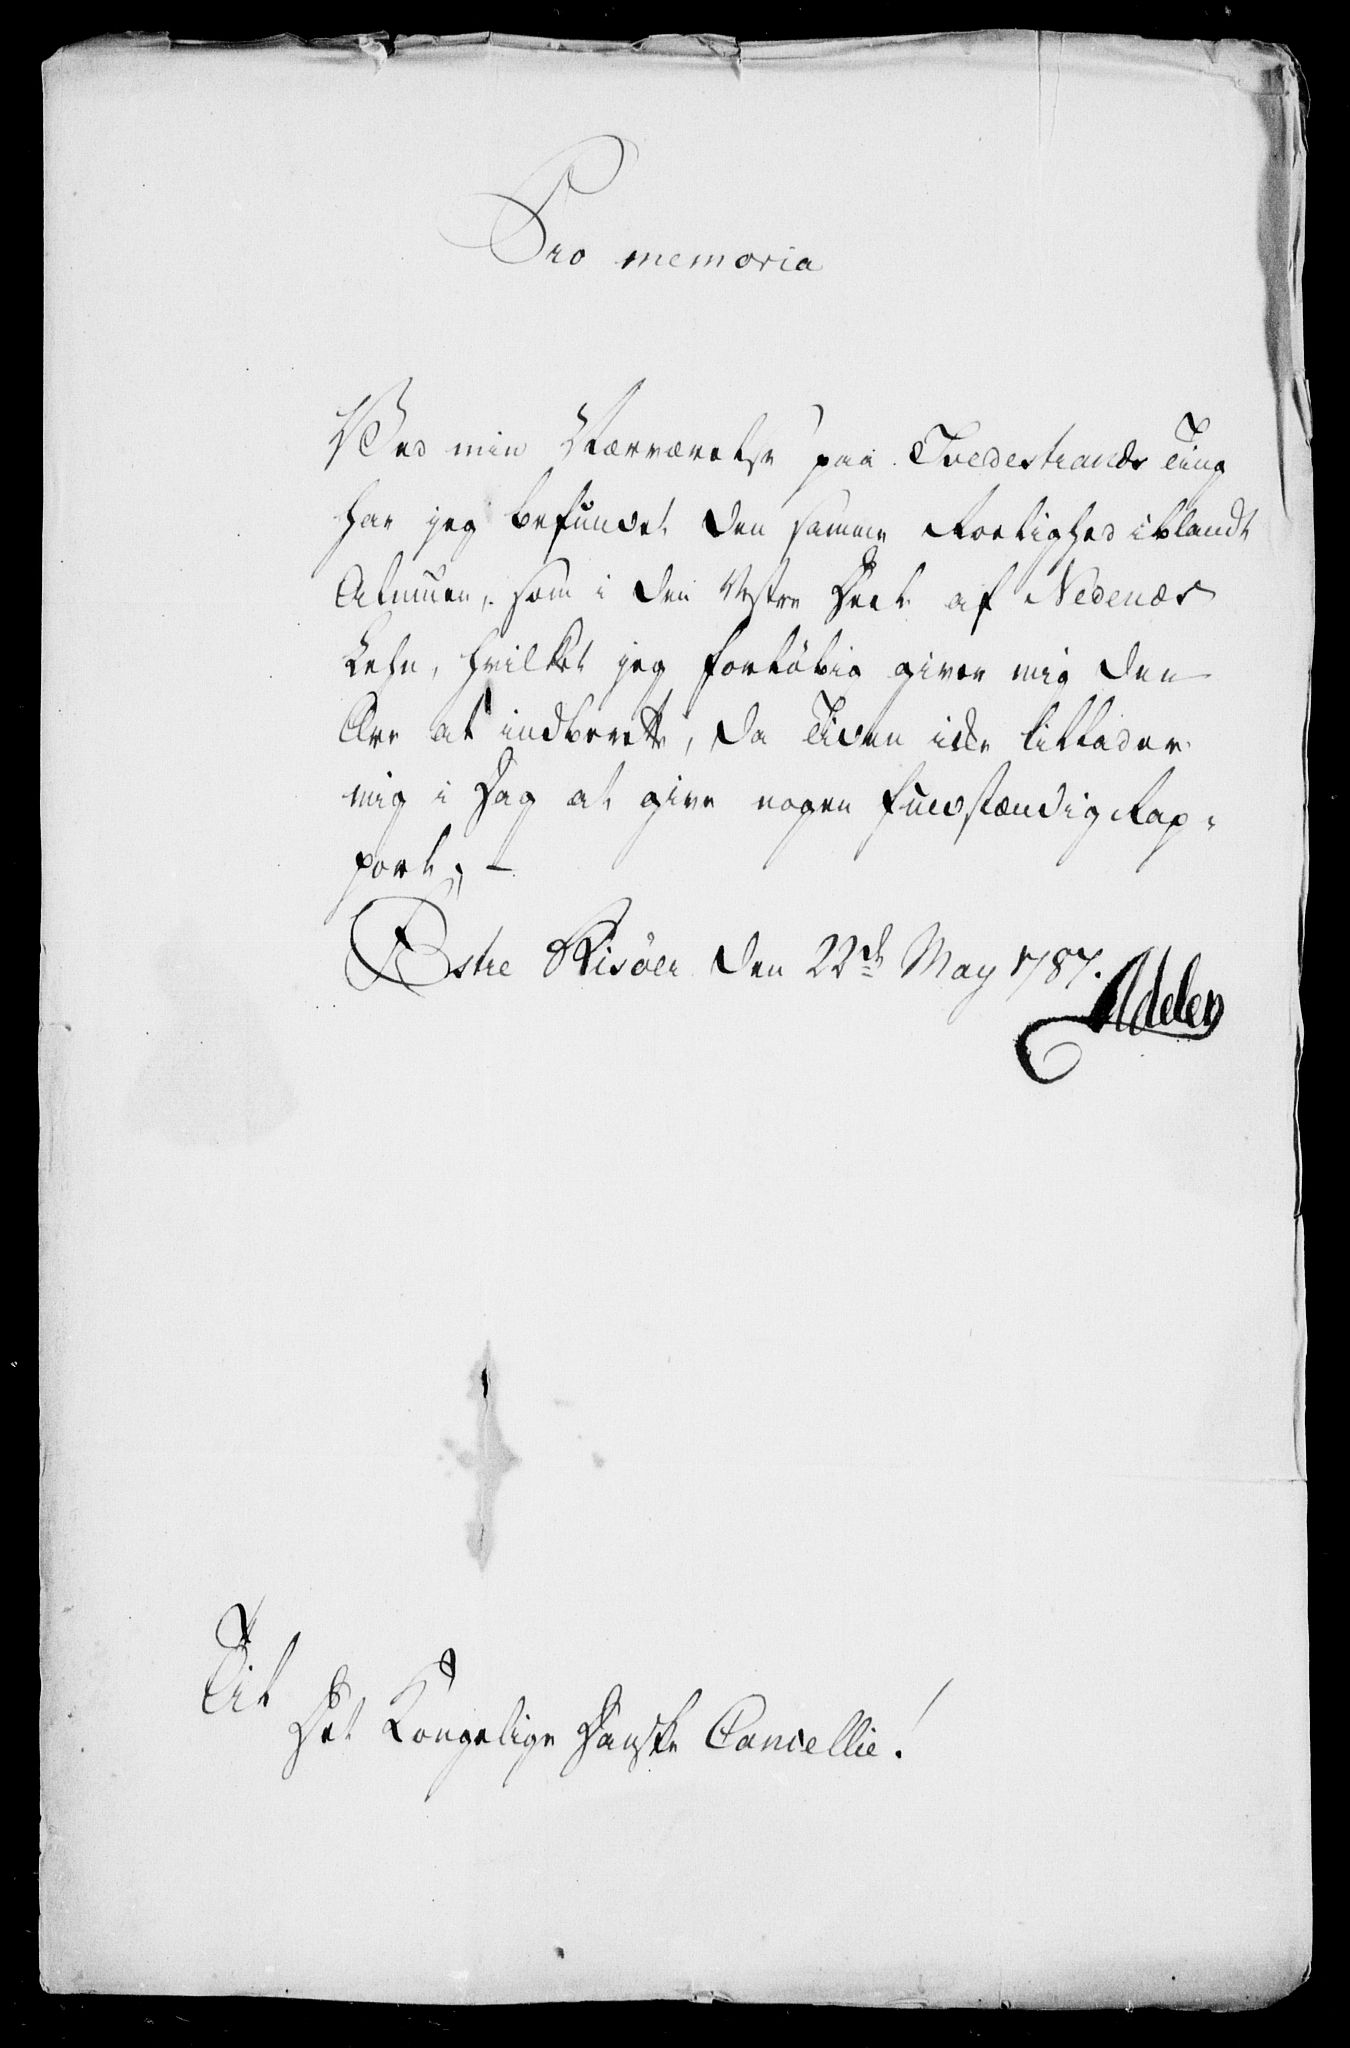 Pro memoria
Ved min Nærværelse paa Tvedestrands Ting
har jeg befundet den samme Roelighed iblandt
Almuen, som i den Vestre Deel af Nedenæs
Lehn, hvilket jeg forløbig giver mig den
Ære at indberette, da Tiden icke tillader
mig i Dag at give nogen fuldstændig Rap-
port. –
Østre Risöer den 22de May 1787.
Adeler
Til
Det Kongelige Danske Cancellie!